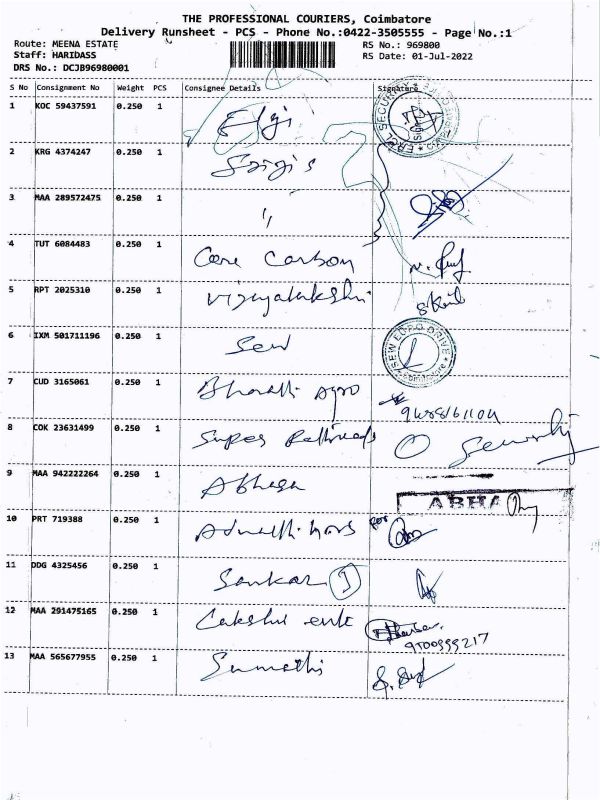 THE PROFESSIONAL COURIERS, Coimbatore
Delivery Runsheet - PCS - Phone No.:0422-3505555 - Page No.:1
Route: MEENA ESTATE
Staff: HARIDASS
DRS No.: DCJB96980001
RS No.: 969800
RS Date: 01-Jul-2022
S No Consignment No Weight PCS Consignee Details Signature
1 KOC 59437591 0.250 1 Elgi
2 KRG 4374247 0.250 1
3 MAA 289572475 0.250 1 "
4 TUT 6084483 0.250 1 Core Carbon
5 RPT 2025310 0.250 1 Vijayalakshmi
6 IXM 501711196 0.250 1 Sew SEW EURO DRIVE
7 CUD 3165061 0.250 1 Bharath Agro
8 COK 23631499 0.250 1 Super
9 MAA 942222264 0.250 1 ABHA
10 PRT 719388 0.250 1 for
11 DDG 4325456 0.250 1 Sankar
12 MAA 291475165 0.250 1 Lakshmi ente
13 MAA 565677955 0.250 1 Sumathi